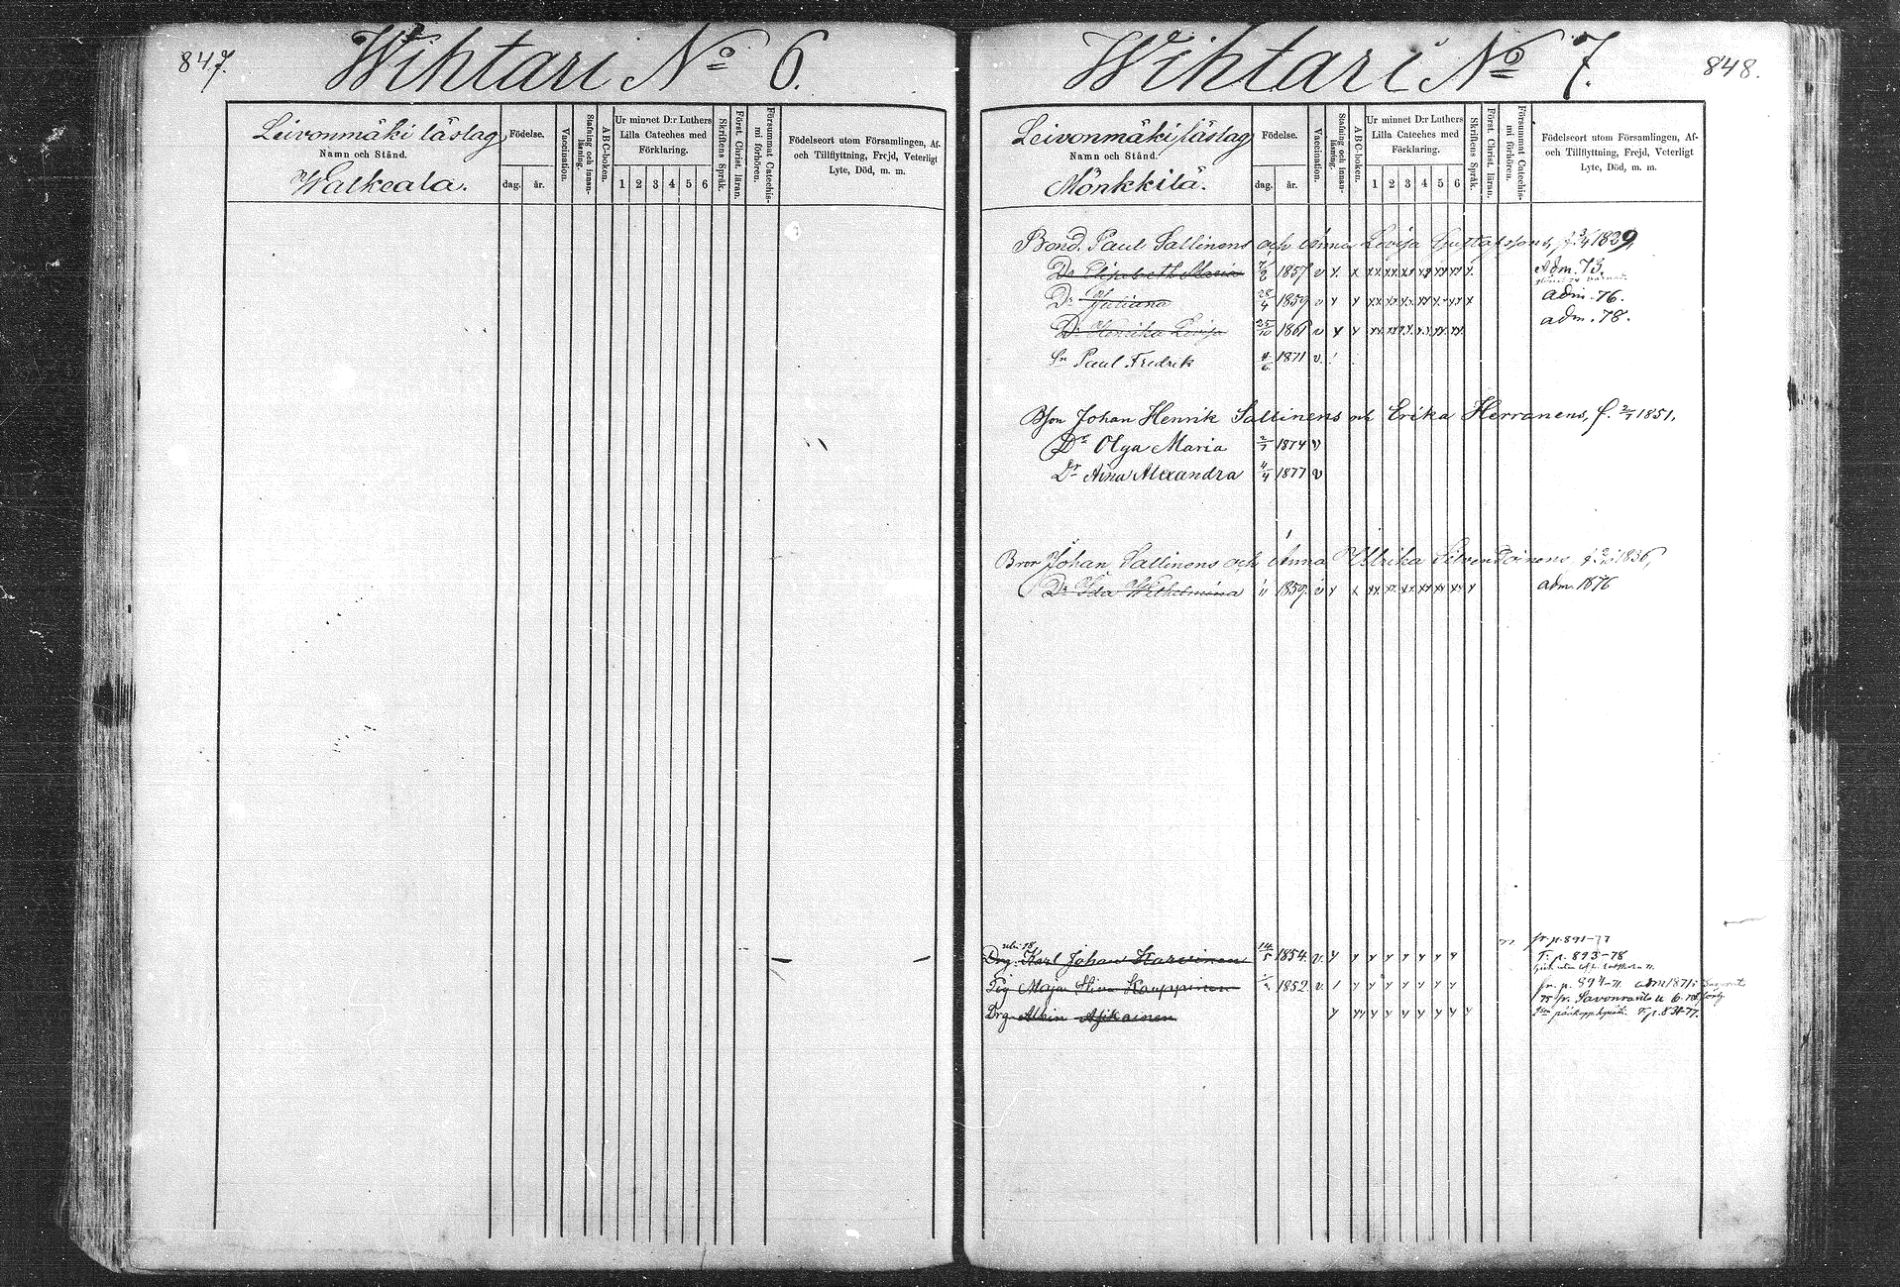 847.
Wihtari No 6.
Leivonmäki läslag
Namn och Stånd.
Walkeala.
Födelse.
dag. år.
Vaccination.
Stafning och innan-läsning.
ABC-boken.
Ur minnet D:r Luthers
Lilla Cateches med
Förklaring.
1 2 3 4 5 6
Skriftens Språk.
Först. Christ. läran.
Försummat Catechis-
mi förhören.
Födelseort utom Församlingen, Af-
och Tillflyttning, Frejd, Veterligt
Lyte, Död, m. m.
Wihtari No 7.
848.
Leivonmäki läslag
Namn och Stånd.
Mönkkilä.
Födelse.
dag. år.
Vaccination.
Stafning och innan-läsning.
ABC-boken.
Ur minnet D:r Luthers
Lilla Cateches med
Förklaring.
1 2 3 4 5 6
Skriftens Språk.
Först. Christ. läran.
Försummat Catechis-
mi förhören.
Födelseort utom Församlingen, Af-
och Tillflyttning, Frejd, Veterligt
Lyte, Död, m. m.
Bond. Paul Sallinens och Anna Lovisa 1839
Dr Elisabeth Maria 1857 v x x xx xx xx xx xx xx x Adm. 73.
Dr Juliana 28/4 1859 v x x xx xx xx xx xx xx x adm. 76.
Dr Henrika Lovisa 25/10 1861 v x x xx xx xx xx xx xx adm. 78.
Sn Paul Fredrik 1871 v.
Bson Johan Henrik Sallinens och Erika Herranens, f. 2/7 1851.
Dr Olga Maria 2/7 1874 v
Dr Aina Alexandra 4/4 1877 v
Bror Johan Sallinens och Anna Ulrika 1836,
Dr Ida Wilhelmina 1859 v x x xx xx xx xx xx xx x adm. 1876
fr. p. 891-77
Drg. Karl Johan 14/5 1854 v. x x x x x x x x T. p. 893-78
Pig Maja Stina Kauppinen 1852 v. fr. p. 894-71 adm 1871
75 fr. Savonranta
Drg Asikainen T. p. 831-77.